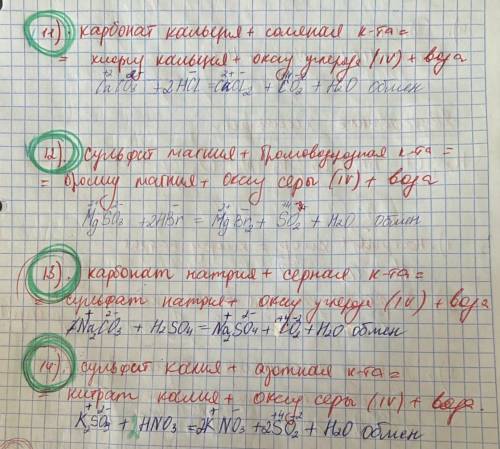 11). карбонат кальция + соляная к-та =
= хлорид кальция + оксид углерода (IV) + вода
CaCO3 + 2HCl = CaCl2 + CO2 + H2O обмен
12). сульфит магния + бромоводородная к-та =
= бромид магния + оксид серы (IV) + вода
MgSO3 + 2HBr = MgBr2 + SO2 + H2O обмен
13). карбонат натрия + серная к-та =
= сульфат натрия + оксид углерода (IV) + вода
Na2CO3 + H2SO4 = Na2SO4 + CO2 + H2O обмен
14). сульфит калия + азотная к-та =
= нитрат калия + оксид серы (IV) + вода.
K2SO3 + 2HNO3 = 2KNO3 + 2SO2 + H2O обмен